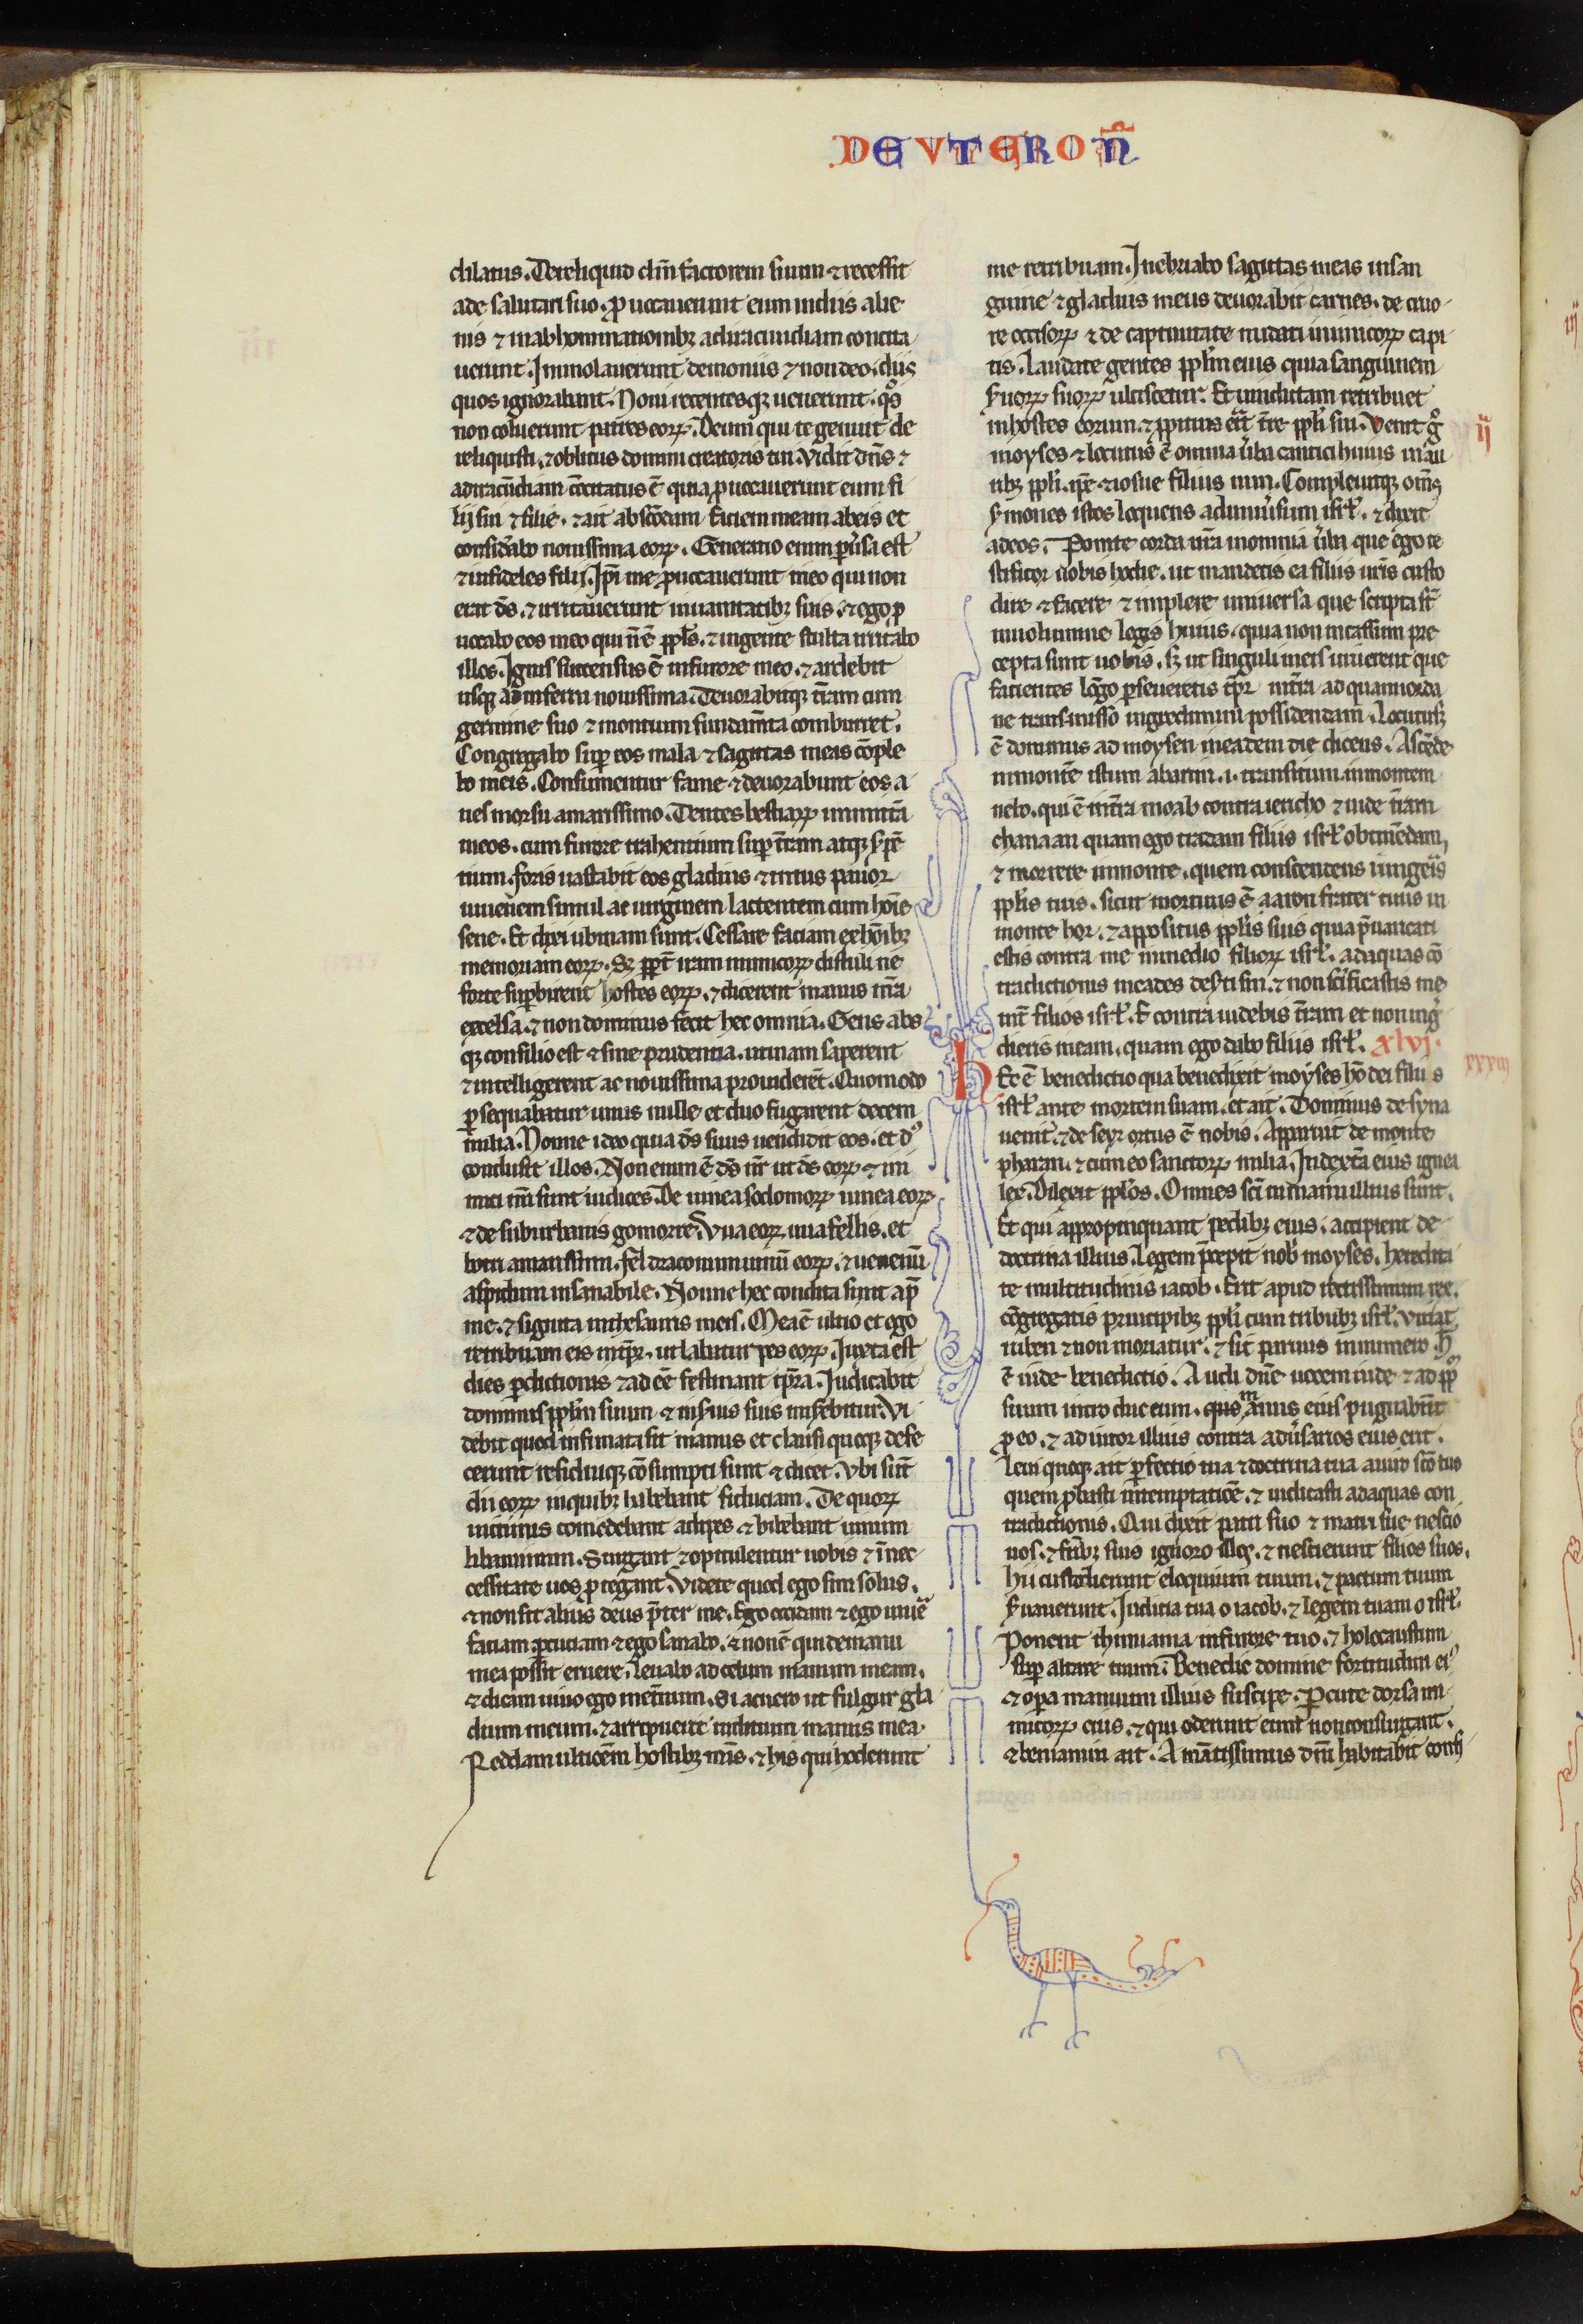 DEVTEROÑ
dilatus. Dereliquid dm̄ factorem suum ⁊ recessit
a deo salutari suo. ꝓuocauerunt eum in diis alie
nis ⁊ in abhominationibꝫ ad iracundiam concita
uerunt. Immolauerunt demoniis ⁊ non deo. diis
quos ignorabant. Noui recentesqꝫ uenerunt. q̊s
non coluerunt patres eoꝝ. Deum qui te genuit de
reliquisti. ⁊ oblitus domini creatoris tui. Vidit dn̄s ⁊
ad iracūdiam cōcitatus ē quia ꝓuocauerunt eum fi
lij sui ⁊ filie. ⁊ ait abscōdam faciem meam ab eis et
considerabo nouissima eoꝝ. Generatio enim ꝑuersa est
⁊ infideles filij. Ipi me ꝓuocauerunt in eo qui non
erat ds̄. ⁊ irritauerunt in uanitatibꝫ suis. ⁊ ego ꝓ
uocabo eos in eo qui n̄ ē ppl̄s. ⁊ in gente stulta irritabo
illos. Ignis succensus ē in furore meo. ⁊ ardebit
usqꝫ ad inferni nouissima. Deuorabitqꝫ t̄ram cum
germine suo ⁊ montium fundam̄ta comburet.
Congregabo suꝑ eos mala ⁊ sagittas meas cōple
bo in eis. Consumentur fame ⁊ deuorabunt eos a
ues morsu amarissimo. Dentes bestiaꝝ immittā
in eos. cum furore trahentium suꝑ t̄ram atqꝫ ẜpē
tium. foris uastabit eos gladius ⁊ intus pauor
iuuenem simul ac uirginem lactentem cum hoīe
sene. Et dixi ubinam sunt. Cessare faciam ex hōibꝫ
memoriam eoꝝ. Sꝫ ꝓpt̄ iram inimicoꝝ distuli ne
forte suꝑbirent hostes eoꝝ. ⁊ dicerent manus nr̄a
excelsa. ⁊ non dominus fecit hec omnia. Gens abs
qꝫ consilio est ⁊ sine prudentia. utinam saperent
⁊ intelligerent ac nouissima prouiderēt. Quomodo
ꝑsequabatur unus mille et duo fugarent decem
milia. Nonne ideo quia ds̄ suus uendidit eos. et dꝰ
conclusit illos. Non enim ē ds̄ nr̄ ut ds̄ eoꝝ ⁊ ini
mici nr̄i sunt iudices. De uinea sodomoꝝ uinea eoꝝ
⁊ de suburbanis gomorre. Vua eoꝝ uua fellis. et
botri amarissimi. fel draconum uinū eoꝝ. ⁊ uenenū
aspidum insanabile. Nonne hec condita sunt ap̄
me. ⁊ signata in thesauris meis. Mea ē ultio et ego
retribuam eis in tp̄r. ut labatur pes eoꝝ. Iuxta est
dies ꝑditionis ⁊ adeē festinant tp̄ra. Iudicabit
dominus ppl̄m suum ⁊ in ẜuis suis miserebitur. Vi
debit quod infirmata sit manus et clausi quoqꝫ defe
cerunt residuiqꝫ cōsumpti sunt ⁊ dicet. Vbi sūt
dii eoꝝ in quibꝫ habebant fiduciam. De quoꝝ
uictimis comedebant adipes ⁊ bibebant uinum
libaminum. Surgant ⁊ opitulentur uobis ⁊ ī nec
cessitate uos ꝓtegant. Videte quod ego sim solus.
⁊ non sit alius deus p̄ter me. Ego occidam ⁊ ego uiuē
faciam ꝑcutiam ⁊ ego sanabo. ⁊ non ē qui de manu
mea possit eruere. Leuabo ad celum manum meam.
⁊ dicam uiuo ego in et̄num. Si acuero ut fulgur gla
dium meum. ⁊ arripuerit iudicium manus mea.
Reddam ultionē hostibꝫ meis. ⁊ his qui hoderunt
me retribuam. Inebriabo sagittas meas in san
guine ⁊ gladius meus deuorabit carnes. de cruo
re occisoꝝ ⁊ de captiuitate nudati inimicoꝝ capi
tis. Laudate gentes ppl̄m eius quia sanguinem
ẜuoꝝ suoꝝ ulciscetur. Et uindictam retribuet
in hostes eorum. ⁊ ꝓpitius erit t̄re ppl̄i sui. Venit g̊
moyses ⁊ locutus ē omnia ūba cantici huius in au
ribꝫ ppl̄i. ip̄e ⁊ iosue filius nun. Compleuitqꝫ om̄s
ẜmones istos loquens ad uniūsum isrl̄. ⁊ dixit
ad eos. Ponite corda ur̄a in omnia ūba que ego te
stificor uobis hodie. ut mandetis ea filiis ur̄is custo
dire ⁊ facere ⁊ implere uniuersa que scripta st̄
in uolumine legis huius. quia non incassum pre
cepta sunt uobis. sꝫ ut singuli in eis uiuerent que
facientes lōgo ꝑseueretis tp̄r in t̄ra ad quam iorda
ne transmisso ingredimini possidendam. Locutusqꝫ
ē dominus ad moysen in eadem die dicens. Ascēde
in montē istum abarim. .i. transitum in montem
nebo. qui ē in t̄ra moab contra iericho ⁊ uide t̄ram
chanaan quam ego tradam filiis isrl̄ obtinēdam,
⁊ morere in monte. quem conscendens iungeris
ppl̄is tuis. sicut mortuus ē aaron frater tuus in
monte hor. ⁊ appositus ppl̄is suis quia p̄uaricati
estis contra me in medio filioꝝ isrl̄. ad aquas cō
tradictionis in cades deserti sin. ⁊ non sc̄ificastis me
int̄ filios isrl̄. E contra uidebis t̄ram et non ingr̄
dieris in eam. quam ego dabo filiis isrl̄. xlvj.
Hec ē benedictio qua benedixit moyses hō dei filiis
isrl̄ ante mortem suam. et ait. Dominus de syna
uenit. ⁊ de seyr ortus ē nobis. Apparuit de monte
pharan. ⁊ cum eo sanctoꝝ milia. In dext̄a eius ignea
lex. Dilexit ppl̄os. Omnes sc̄i in manu illius sunt.
Et qui appropinquant pedibꝫ eius. accipient de
doctrina illius. Legem p̄cepit nob̄ moyses. heredita
te multitudinis iacob. Erit apud rectissimum rex.
cōgregatis principibꝫ ppl̄i cum tribubꝫ isrl̄. Viuat
ruben ⁊ non moriatur. ⁊ sit paruus in numero. h̄
ē iude benedictio. Audi dn̄e uocem iude ⁊ ad ppl̄m
suum introduc eum. manus eius pugnabūt
ꝓ eo. ⁊ adiutor illius contra adūsarios eius erit.
Leui quoqꝫ ait ꝑfectio tua ⁊ doctrina tua a uiro sc̄o tuo
quem ꝓbasti in temptatiōe. ⁊ iudicasti ad aquas con
tradictionis. Qui dixit patri suo ⁊ matri sue nescio
uos. ⁊ fr̄ibꝫ suis ignoro illos. ⁊ nescierunt filios suos.
hii custodierunt eloquium tuum. ⁊ pactum tuum
ẜuauerunt. Iudicia tua o iacob. ⁊ legem tuam o isrl̄.
Ponent thimiama in furore tuo. ⁊ holocaustum
suꝑ altare tuum. Benedic domine fortitudini eiꝰ
⁊ opa manuum illius suscipe. Ꝑcute dorsa ini
micoꝝ eius. ⁊ qui oderunt eum non consurgant.
⁊ beniamin ait. Amātissimus dn̄i habitabit confi
ij
xxxiij